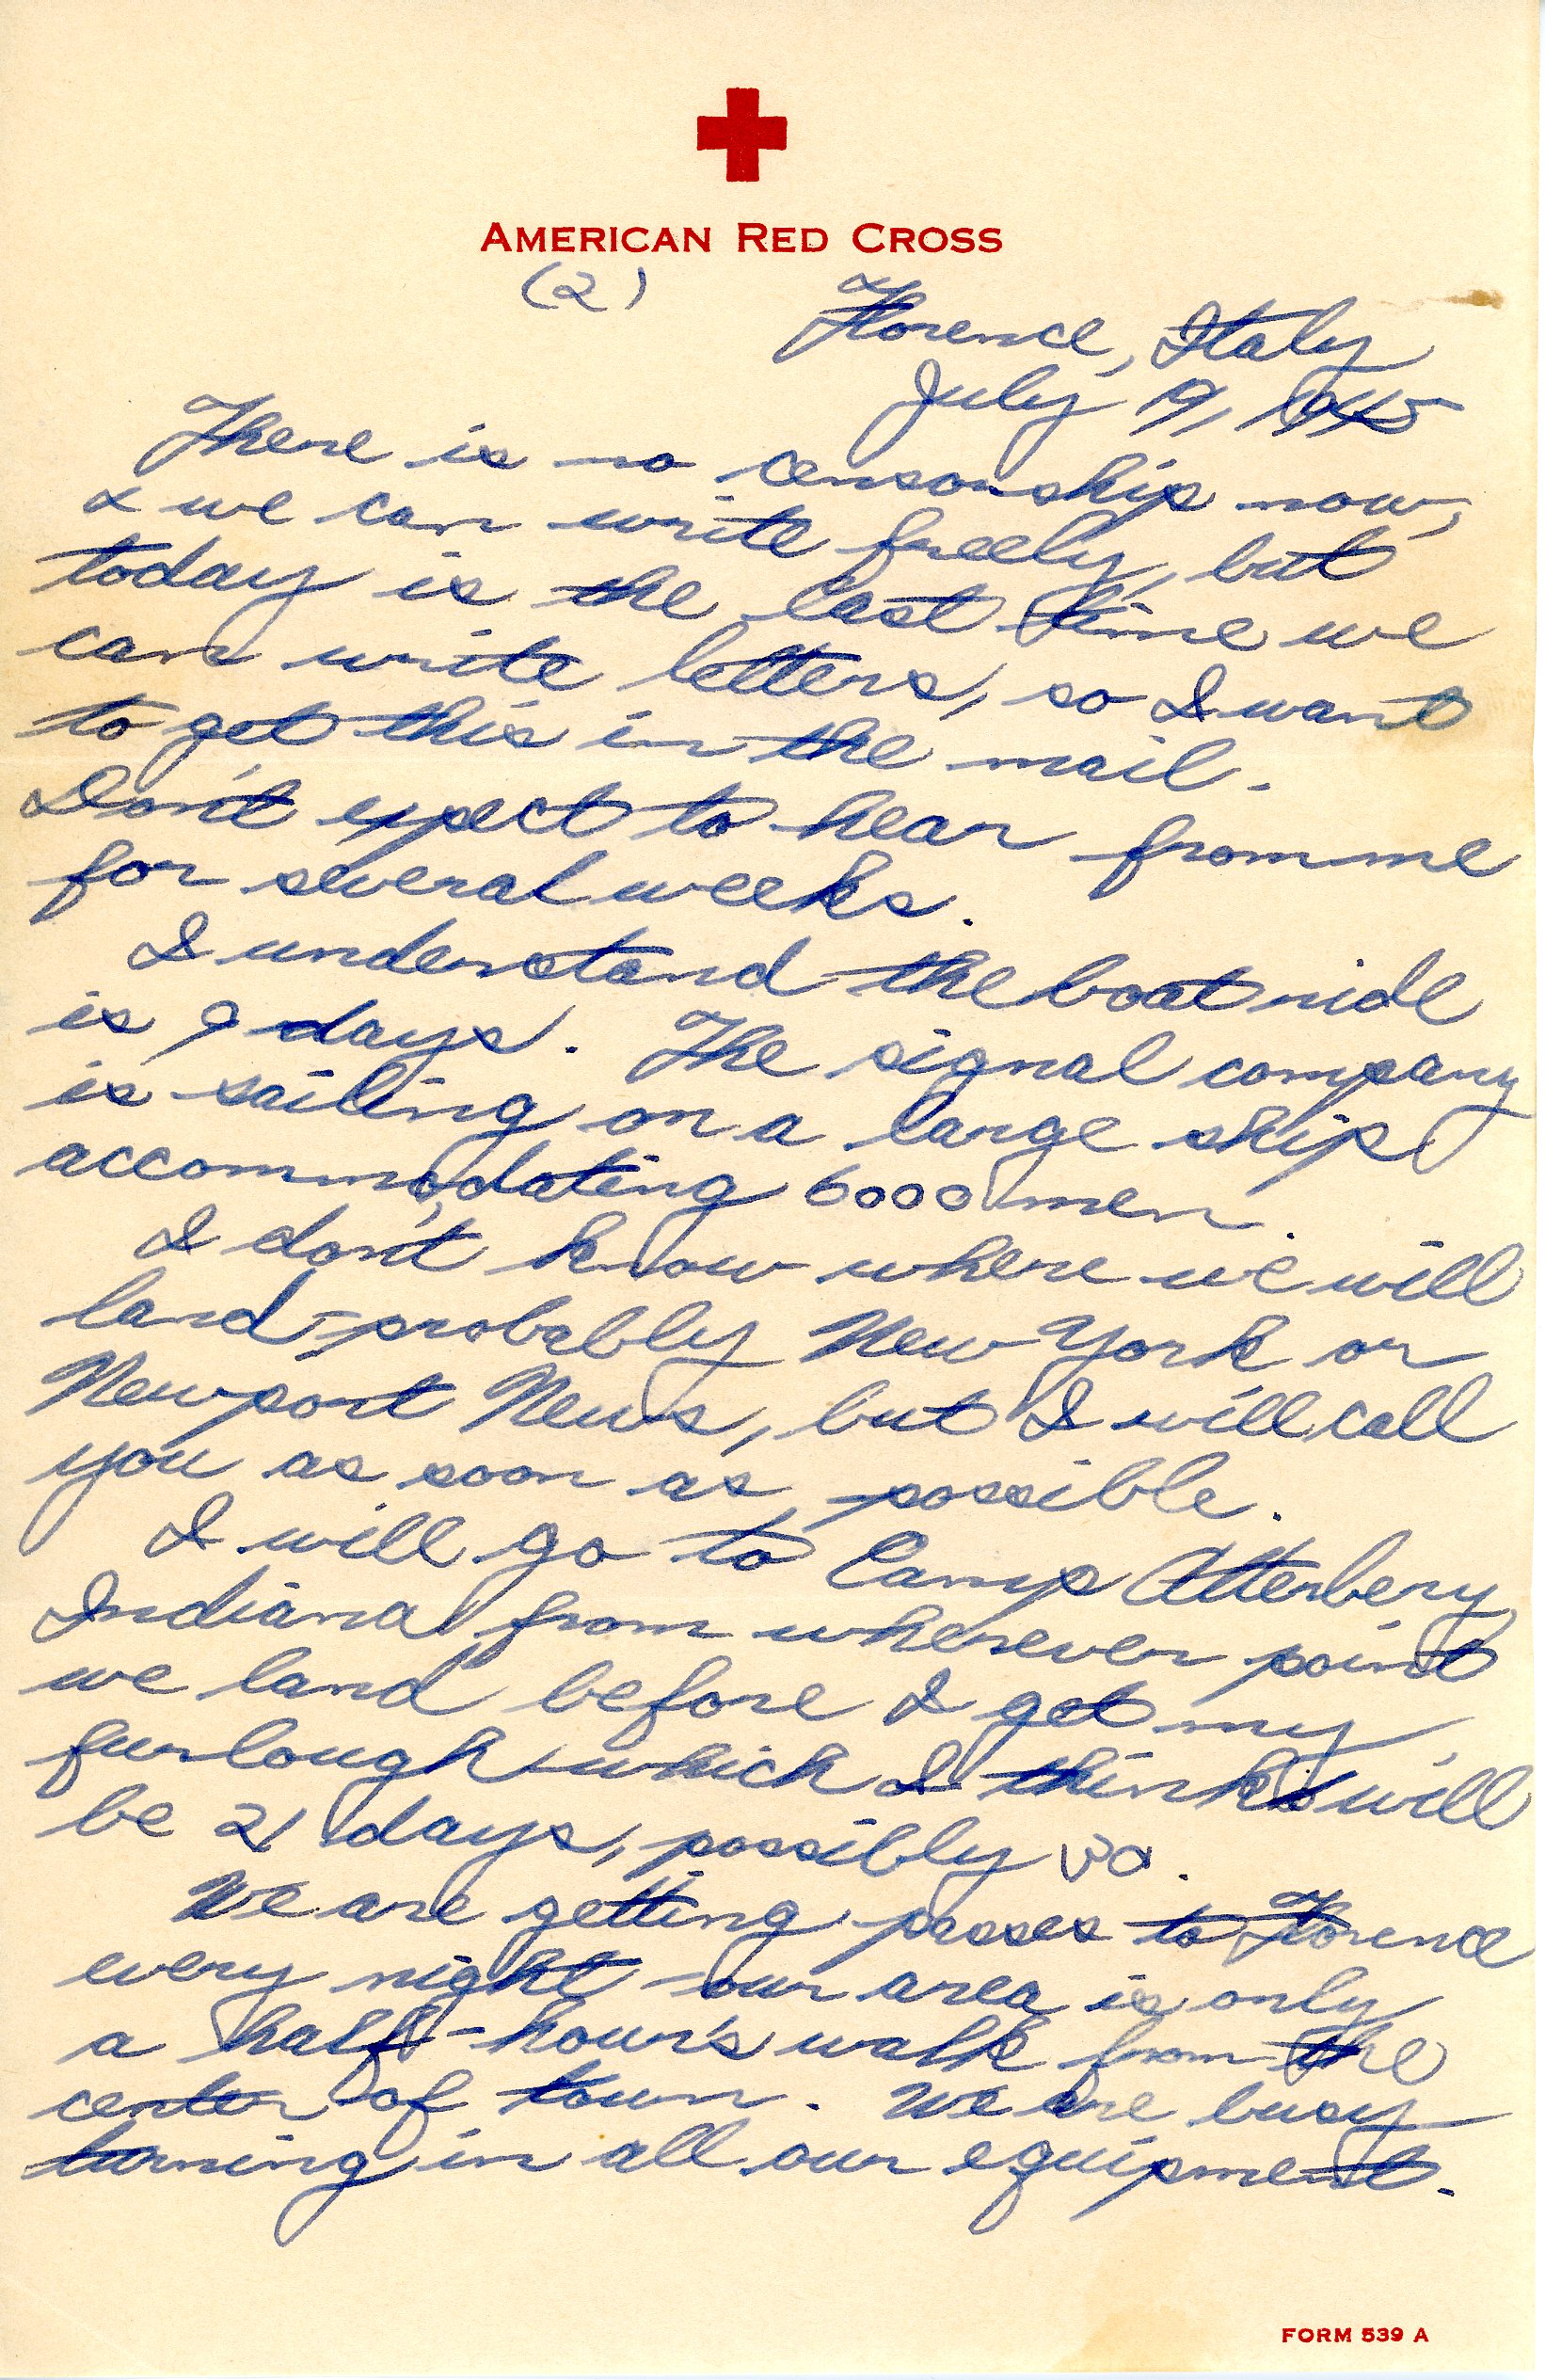 AMERICAN RED CROSS
(2)
Florence, Italy
July 19, 1945
There is no censorship now,
& we can write freely, but
today is the last time we
can write letters, so I want
to get this in the mail.
Don't expect to hear from me
for several weeks.
I understand the boat ride
is 9 days. The signal company
is sailing on a large ship
accommodating 6000 men.
I don't know where we will
land - probably New York or
Newport News, but I will call
you as soon as possible.
I will go to Camp Atterbery
Indiana from wherever point
we land before I get my
furlough which I think will
be 21 days, possibly 30.
We are getting passes to Florence
every night - our area is only
a half-hour's walk from the
center of town. We are busy
turning in all our equipment.
FORM 539 A